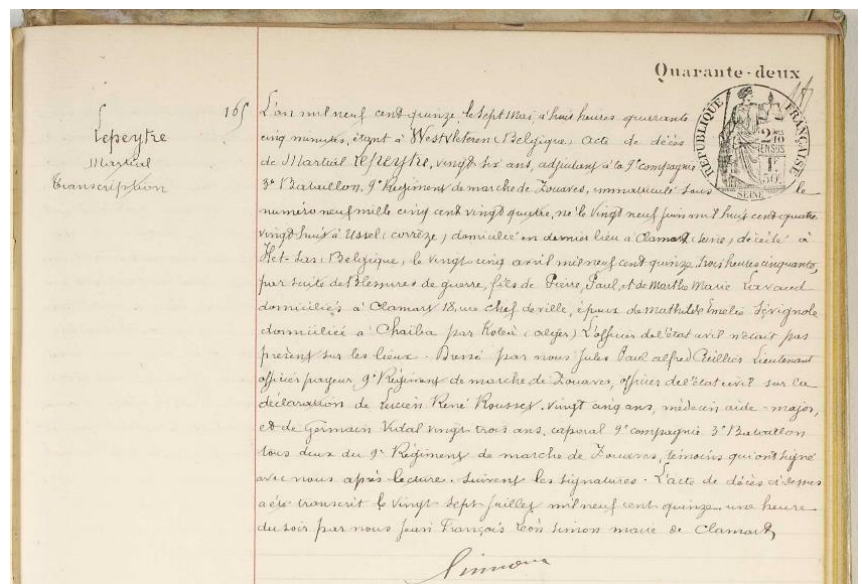 Quarante-deux
165
Lepeytre
Martial
Transcription
RÉPUBLIQUE FRANÇAISE
2/10 EN SUS
1f 50c
SEINE
L'an mil neuf cent quinze, le sept Mai, à huit heures quarante
cinq minutes, étant à Westvleteren (Belgique) acte de décès
de Martial Lepeytre, vingt six ans, adjudant à la 9e compagnie
3e Bataillon, 9e Régiment de marche de Zouaves, immatriculé sous le
numéro neuf mille cinq cent vingt quatre, né le vingt neuf juin mil huit cent quatre
vingt huit à Ussel (Corrèze) domicilié en dernier lieu à Clamart (Seine), décédé à
Het-Sas (Belgique), le vingt cinq avril mil neuf cent quinze, trois heures cinquante,
par suite de Blessures de guerre, fils de Pierre, Paul, et de Marthe Marie Lavaud
domiciliés à Clamart 18, rue chef de ville, époux de Mathilde Emélie Sévignole
domiciliée à Chaïba par Koléa (alger) L'officier de l'état civil n'était pas
présent sur les lieux. Dressé par nous Jules Paul alfred Lieutenant
officier payeur 9e Régiment de marche de Zouaves, officier de l'état civil sur la
déclaration de Lucien René Rousset, vingt cinq ans, médecin aide-major,
et de Germain Vidal vingt trois ans, caporal 9e compagnie 3e Bataillon
tous deux du 9e Régiment de marche de Zouaves, témoins qui ont signé
avec nous après lecture. Suivent les signatures. L'acte de décès ci-dessus
a été transcrit le vingt sept juillet mil neuf cent quinze une heure
du soir par nous Jean François Léon Simon maire de Clamart,
Simon